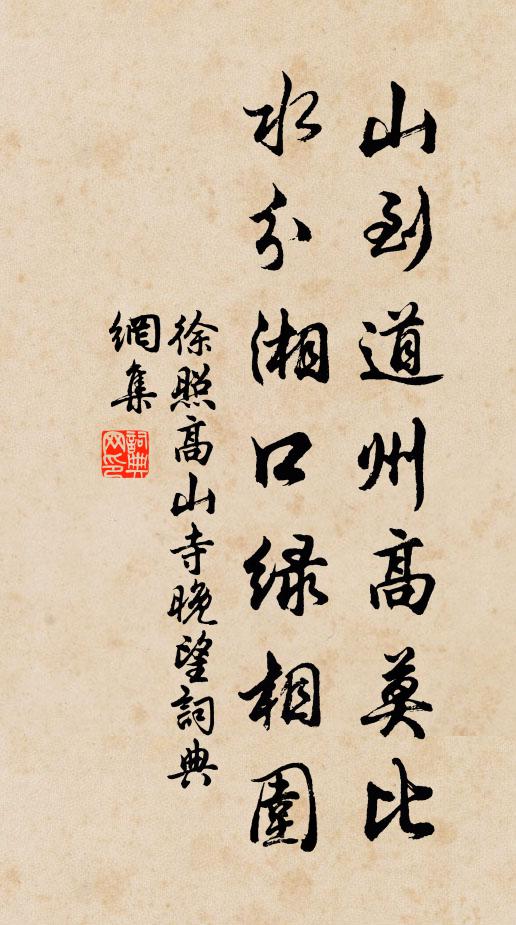 山到道州高莫比
水分湘口绿相围
徐照高山寺晚望詞典
網集
詞典网印